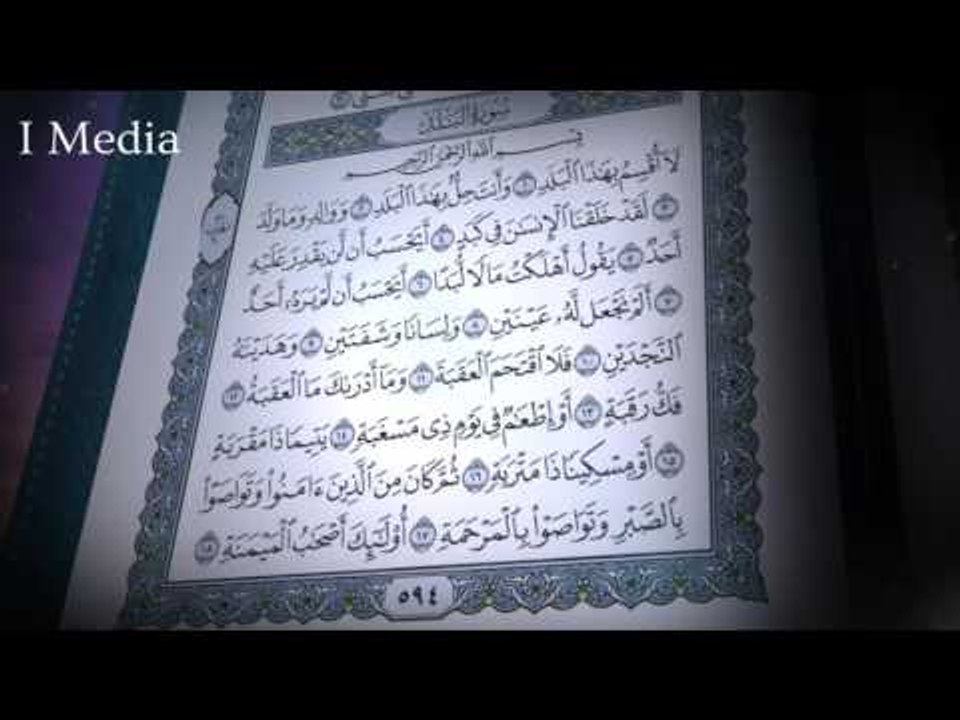 I Media
سُورَةُ الْبَلَدِ
بِسْمِ اللَّهِ الرَّحْمَٰنِ الرَّحِيمِ
لَا أُقْسِمُ بِهَٰذَا الْبَلَدِ ١ وَأَنتَ حِلٌّ بِهَٰذَا الْبَلَدِ ٢ وَوَالِدٍ وَمَا وَلَدَ
٣ لَقَدْ خَلَقْنَا الْإِنسَٰنَ فِي كَبَدٍ ٤ أَيَحْسَبُ أَن لَّن يَقْدِرَ عَلَيْهِ
أَحَدٌ ٥ يَقُولُ أَهْلَكْتُ مَالًا لُّبَدًا ٦ أَيَحْسَبُ أَن لَّمْ يَرَهُۥ أَحَدٌ
٧ أَلَمْ نَجْعَل لَّهُۥ عَيْنَيْنِ ٨ وَلِسَانًا وَشَفَتَيْنِ ٩ وَهَدَيْنَٰهُ
النَّجْدَيْنِ ١٠ فَلَا اقْتَحَمَ الْعَقَبَةَ ١١ وَمَا أَدْرَىٰكَ مَا الْعَقَبَةُ ١٢
فَكُّ رَقَبَةٍ ١٣ أَوْ إِطْعَٰمٌ فِي يَوْمٍ ذِي مَسْغَبَةٍ ١٤ يَتِيمًا ذَا مَقْرَبَةٍ
١٥ أَوْ مِسْكِينًا ذَا مَتْرَبَةٍ ١٦ ثُمَّ كَانَ مِنَ الَّذِينَ ءَامَنُوا۟ وَتَوَاصَوْا۟
بِالصَّبْرِ وَتَوَاصَوْا۟ بِالْمَرْحَمَةِ ١٧ أُو۟لَٰٓئِكَ أَصْحَٰبُ الْمَيْمَنَةِ ١٨
٥٩٤